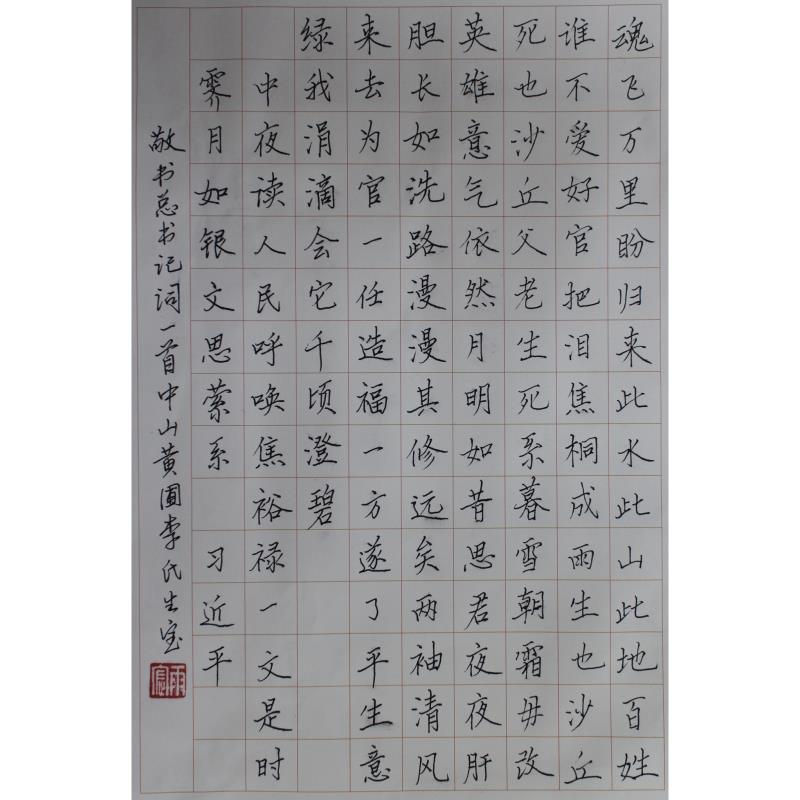 魂飞万里盼归来此水此山此地百姓
谁不爱好官把泪焦桐成雨生也沙丘
死也沙丘父老生死系暮雪朝霜毋改
英雄意气依然月明如昔思君夜夜肝
胆长如洗路漫漫其修远矣两袖清风
来去为官一任造福一方遂了平生意
绿我涓滴会它千顷澄碧
中夜读人民呼唤焦裕禄一文是时
霁月如银文思萦系 习近平
敬书总书记词一首中山黄圃李氏生宝